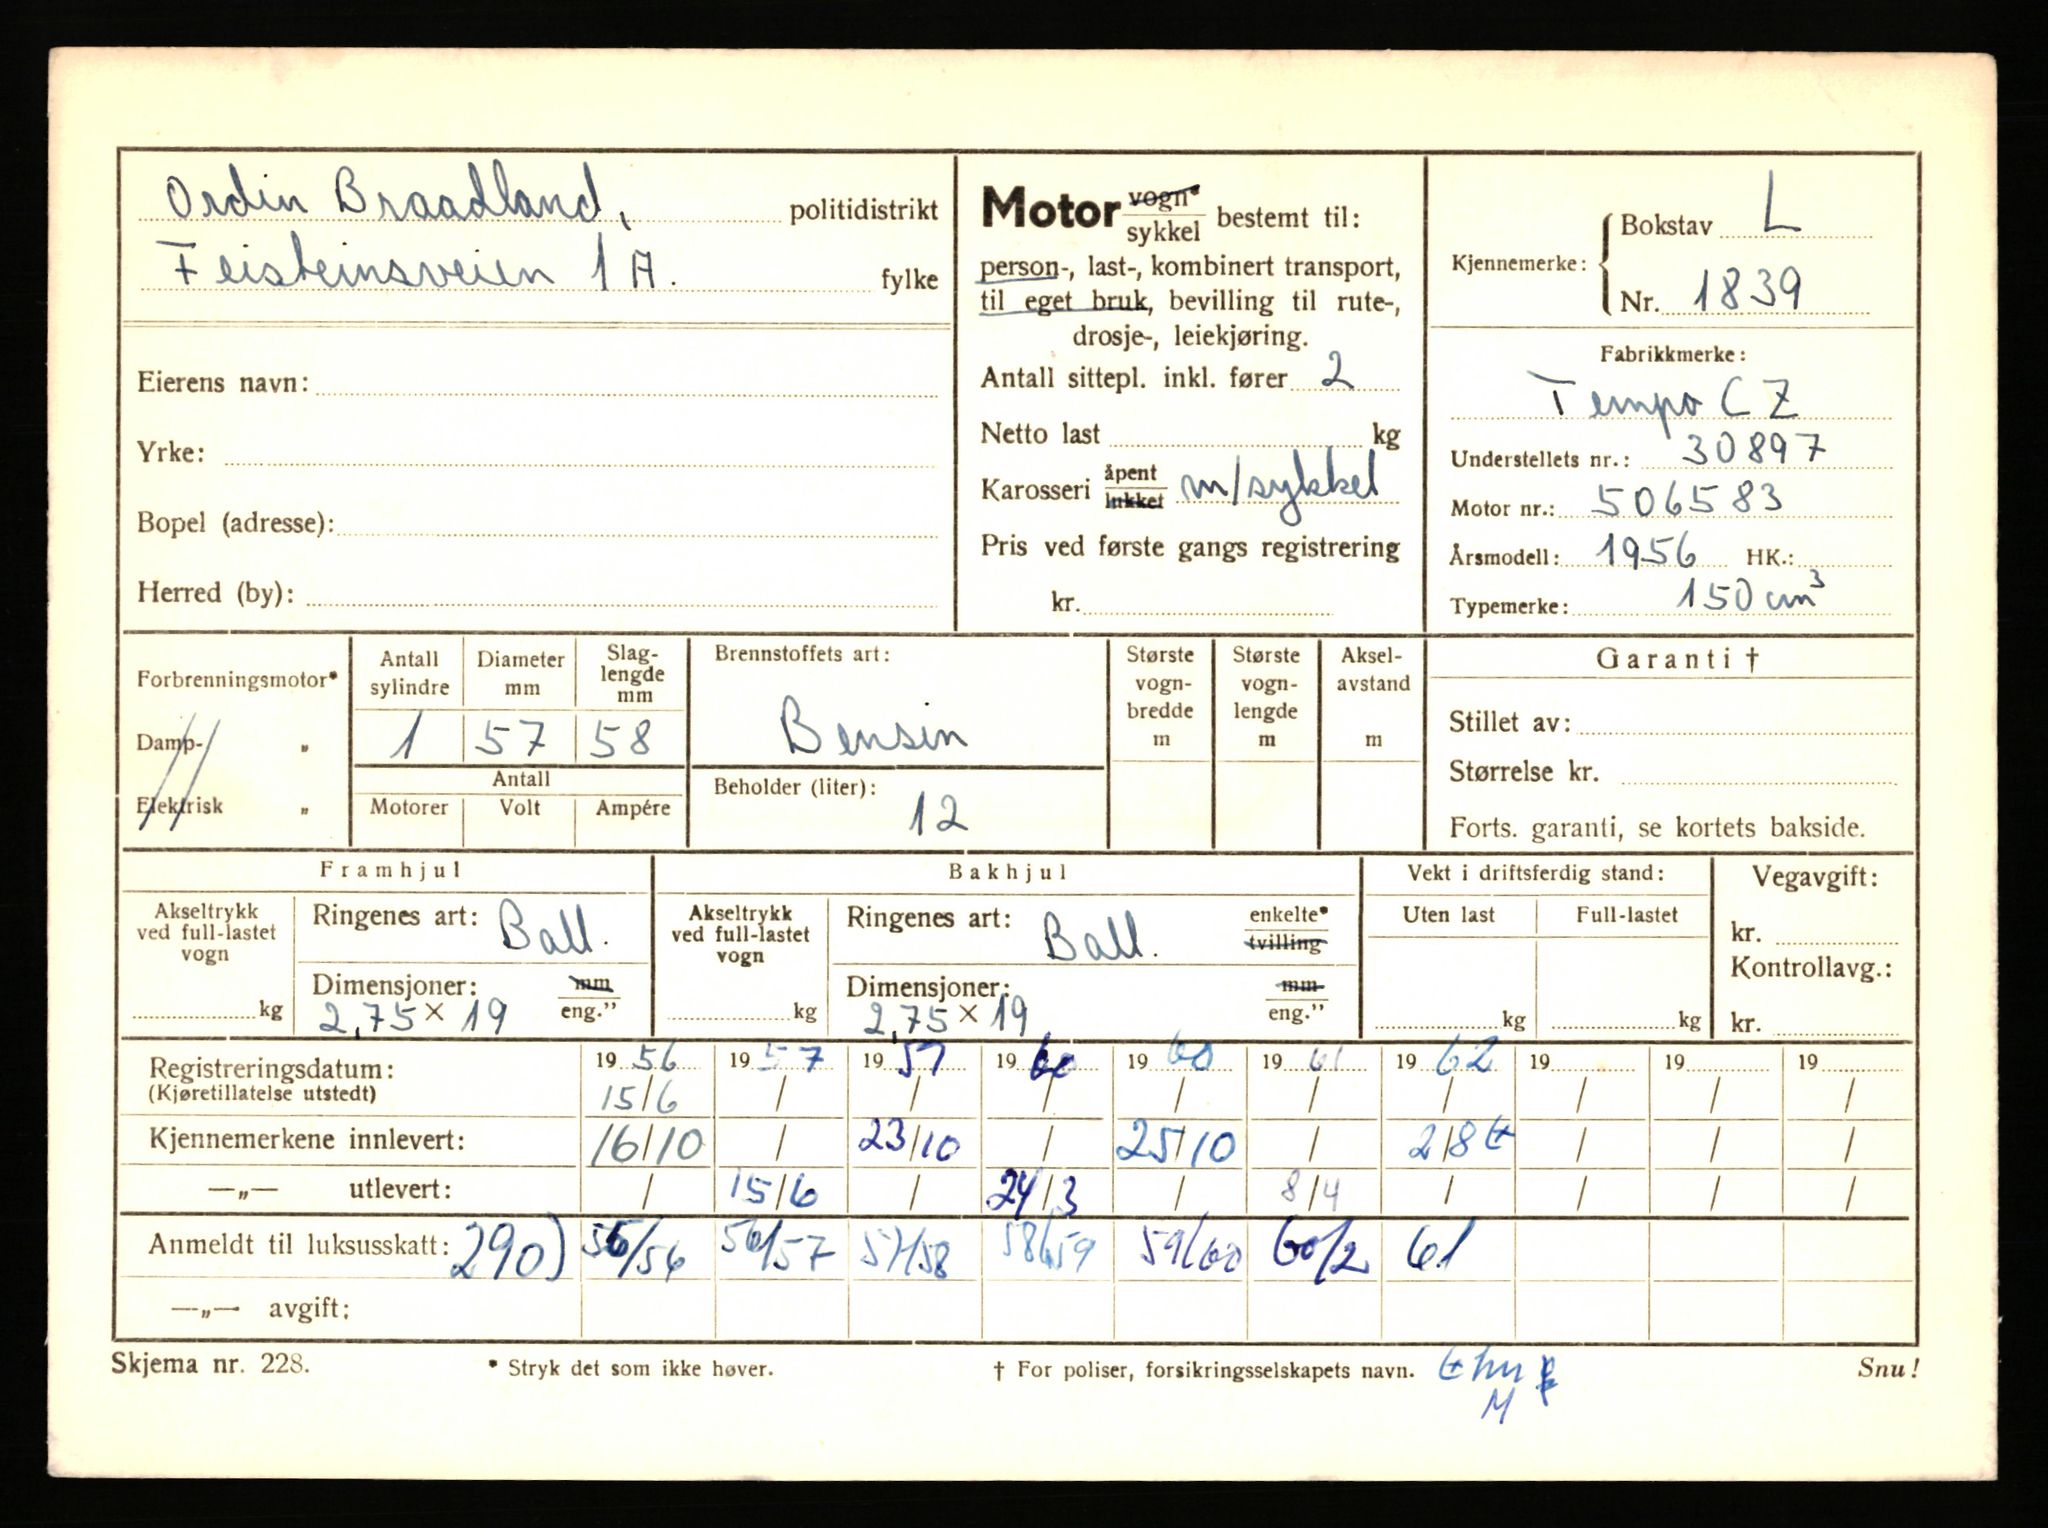 Ordin Braadland, politidistrikt
Feisteinsveien 1 A. fylke
Eierens navn:
Yrke:
Bopel (adresse):
Herred (by):
Motor vogn* / sykkel bestemt til:
person-, last-, kombinert transport,
til eget bruk, bevilling til rute-,
drosje-, leiekjøring.
Antall sittepl. inkl. fører 2
Netto last kg
Karosseri åpent / lukket m/sykkel
Pris ved første gangs registrering
kr.
Kjennemerke: Bokstav L
Nr. 1839
Fabrikkmerke:
Tempo CZ
Understellets nr.: 30897
Motor nr.: 506583
Årsmodell: 1956 HK.:
Typemerke: 150 cm³
Forbrenningsmotor*
Damp- „
Elektrisk „
Antall sylindre Diameter mm Slag-lengde mm
1 57 58
Antall
Motorer Volt Ampére
Brennstoffets art:
Bensin
Beholder (liter):
12
Største vogn-bredde m
Største vogn-lengde m
Aksel-avstand m
Garanti †
Stillet av:
Størrelse kr.
Forts. garanti, se kortets bakside.
Framhjul
Akseltrykk ved full-lastet vogn
kg
Ringenes art: Ball.
Dimensjoner: mm / eng.”
2,75 × 19
Bakhjul
Akseltrykk ved full-lastet vogn
kg
Ringenes art: Ball. enkelte* / tvilling
Dimensjoner: mm / eng.”
2,75 × 19
Vekt i driftsferdig stand:
Uten last Full-lastet
kg kg
Vegavgift:
kr.
Kontrollavg.:
kr.
Registreringsdatum: 19 56 19 57 19 57 19 60 19 60 19 61 19 62 19 19 19
(Kjøretillatelse utstedt) 15/6 / / / / / / / / /
Kjennemerkene innlevert: 16/10 / 23/10 / 25/10 / 2/8 / / /
—„— utlevert: / 15/6 / 24/3 / 8/4 / / / /
Anmeldt til luksusskatt: 290) 56/56 56/57 57/58 58/59 59/60 60/2 61
—„— avgift:
Skjema nr. 228. * Stryk det som ikke høver. † For poliser, forsikringsselskapets navn. Snu!
M